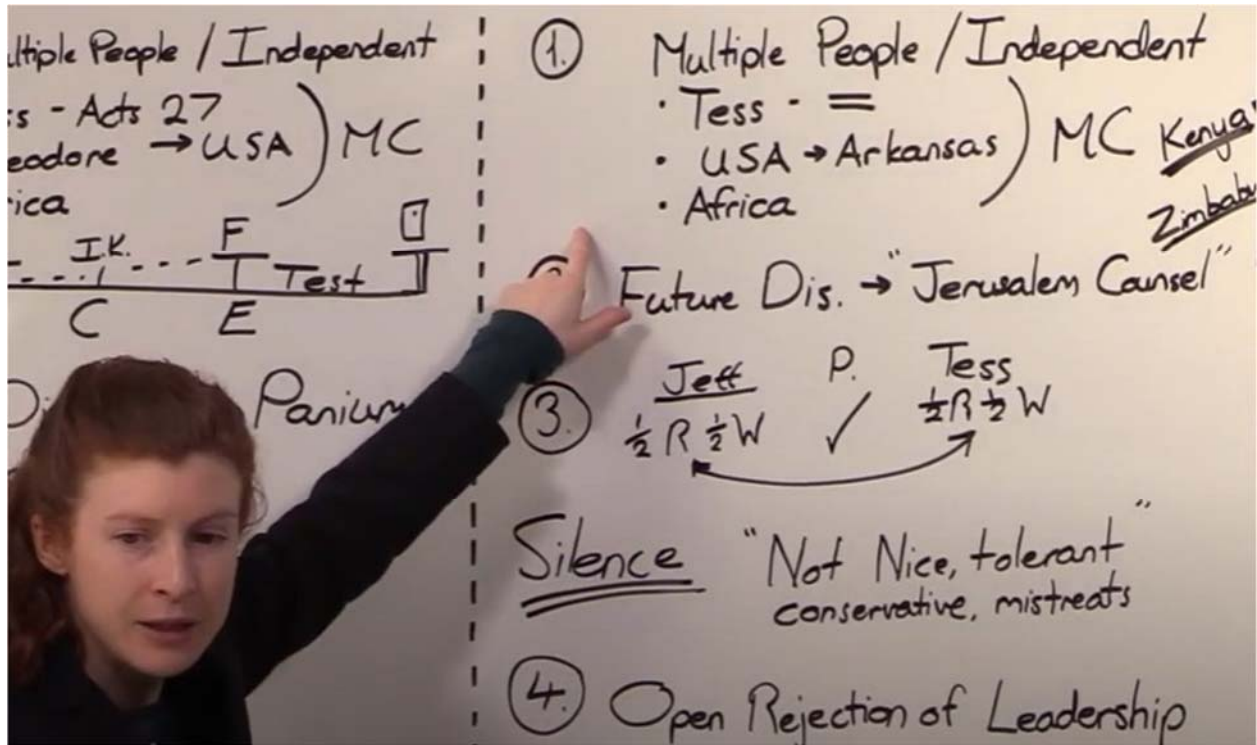 ltiple People / Independent
s - Acts 27
eodore → USA ) MC
ica
I.K. F
Test
C E
Di Panium
1. Multiple People / Independent
· Tess - =
· USA → Arkansas ) MC Kenya
· Africa Zimbabw
Future Dis. → "Jerusalem Counsel"
Jeff P. Tess
3. ½ R ½ W ✓ ½ R ½ W
Silence "Not Nice, tolerant"
conservative, mistreats
4. Open Rejection of Leadership